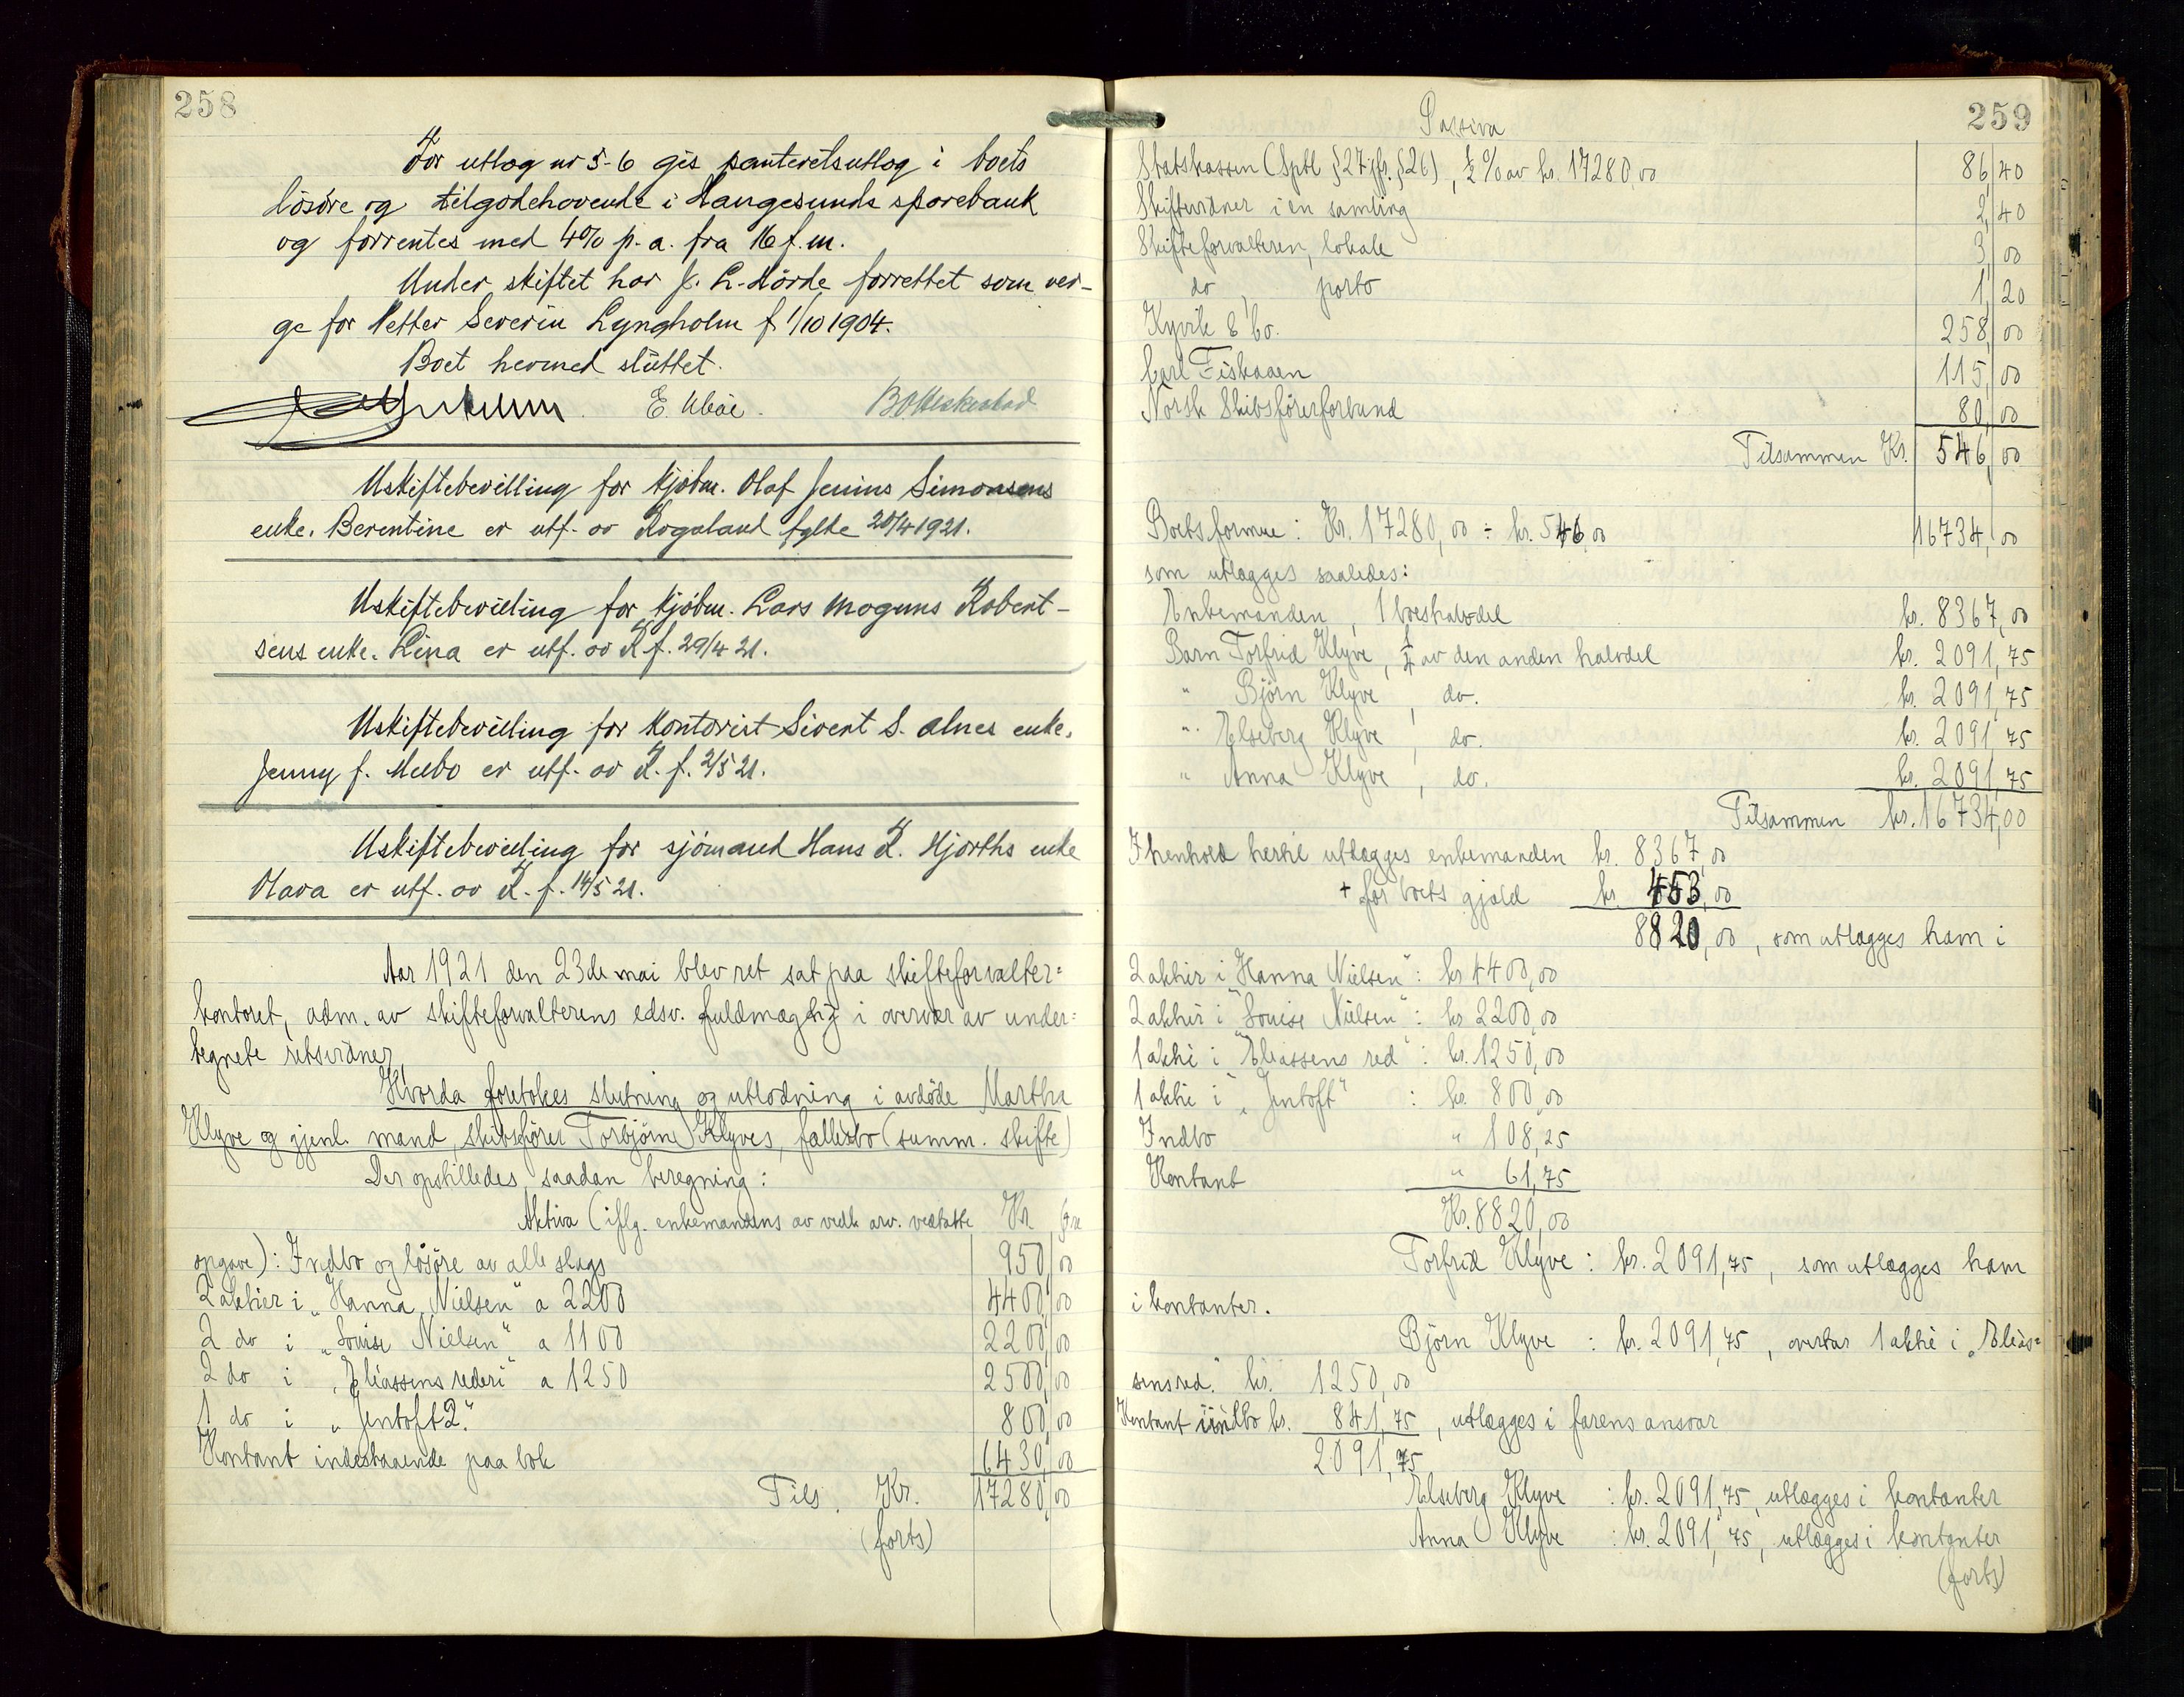 258
For utlæg nr 5-6 gis panteretsutlæg i boets
løsøre og tilgodehavende i Haugesunds sparebank
og forrentes med 4% p.a. fra 16 f.m.
Under skiftet har J. L. Mörde forrettet som ver-
ge for Petter Severin Lyngholm f 1/10 1904.
Boet hermed sluttet.
E. Uleæ.
Uskiftebevilling for kjøbm. Olaf Jenius Simonsens
enke. Berentine er utf. av Rogaland fylke 20/4 1921.
Uskiftebevilling for kjøbm. Lars Magnus Robert-
sens enke. Lina er utf. av R f. 29/4 21.
Uskiftebevilling for kontorist Sivert S. Alnes enke.
Jenny f. Meebo er utf. av R. f. 2/5 21.
Uskiftebevilling for sjømand Hans R. Hjorths enke
Olava er utf. av R. f. 14/5 21.
Aar 1921 den 23de mai blev ret sat paa skifteforvalter=
kontoret, adm. av skifteforvalterens edsv. fuldmægtig i overvær av under=
tegnete retsvidner,
Hvorda foretokes slutning og utlodning i avdøde Martha
Klyve og gjenl. mand, skibsfører Torbjørn Klyves, fællesbo (summ. skifte)
Der opstilledes saadan beregning:
Aktiva (iflg. enkemandens av vedk arv. vedtatte Kr Øre
opgave): Indbo og løsøre av alle slags 950,00
2 aktier i „Hanna Nielsen" a 2200 4400,00
2 do i „Louise Nielsen" a 1100 2200,00
2 do i „Eliassens rederi" a 1250 2500,00
1 do i „Jentoft 2." 800,00
Kontant indestaaende paa bok 6430,00
Tils. Kr. 17280,00
(forts)
259
Passiva
Statskassen (Sptl §27 jfr. §26), ½ % av kr. 17280,00 86,40
Skiftevidner i en samling 2,40
Skifteforvalteren, lokale 3,00
do porto 1,20
Kyvik & Co. 258,00
Carl Fiskaaen 115,00
Norsk Skibsførerforbund 80,00
Tilsammen Kr. 546,00
Boets formue: Kr. 17280,00 ÷ kr. 546,00 16734,00
som utlægges saaledes:
Enkemanden, 1 boeshalvdel kr. 8367,00
Barn Torfrid Klyve, ¼ av den anden halvdel kr. 2091,75
" Bjørn Klyve, do. kr. 2091,75
" Elseberg Klyve, do. kr. 2091,75
" Anna Klyve, do. kr. 2091,75
Tilsammen kr. 16734,00
I henhold hertil utlægges enkemanden kr. 8367,00
+ for boets gjæld kr. 453,00
8820,00, som utlægges ham i
2 aktier i „Hanna Nielsen": kr 4400,00
2 aktier i „Louise Nielsen": kr 2200,00
1 aktie i „Eliassens red": kr. 1250,00
1 aktie i „Jentoft" : kr. 800,00
Indbo " 108,25
Kontant " 61,75
Kr. 8820,00
Torfrid Klyve: kr. 2091,75, som utlægges ham
i kontanter.
Bjørn Klyve : kr. 2091,75, overtar 1 aktie i „Elias=
sens red." kr. 1250,00
Kontant i indbo kr. 841,75, utlægges i farens ansvar
2091,75
Elseberg Klyve : kr. 2091,75, utlægges i kontanter
Anna Klyve : kr. 2091,75, utlægges i kontanter
(forts)